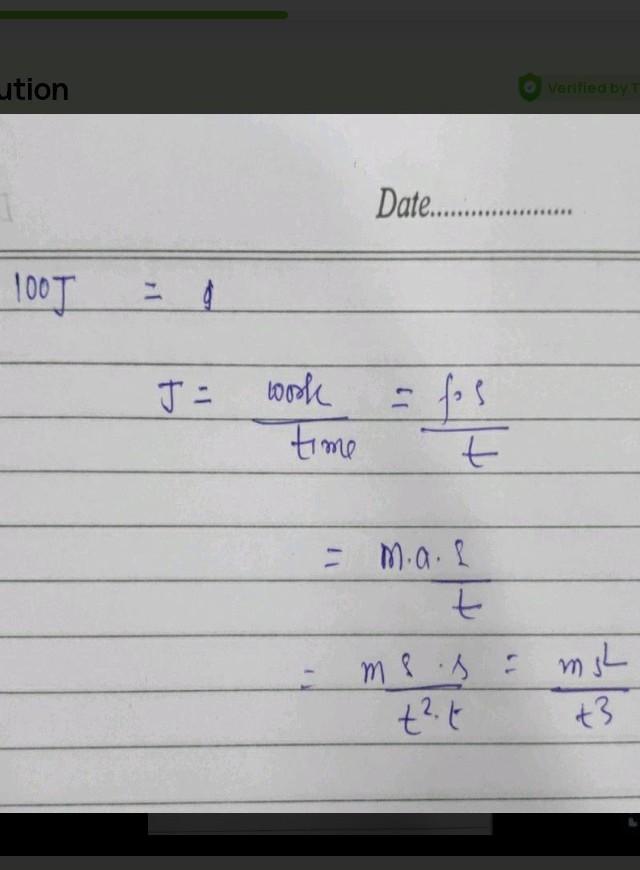 ution
Verified by T
Date.....................
100J =
J = work / time = f.s / t
= m.a.s / t
= m s . s / t². t = m s² / t3